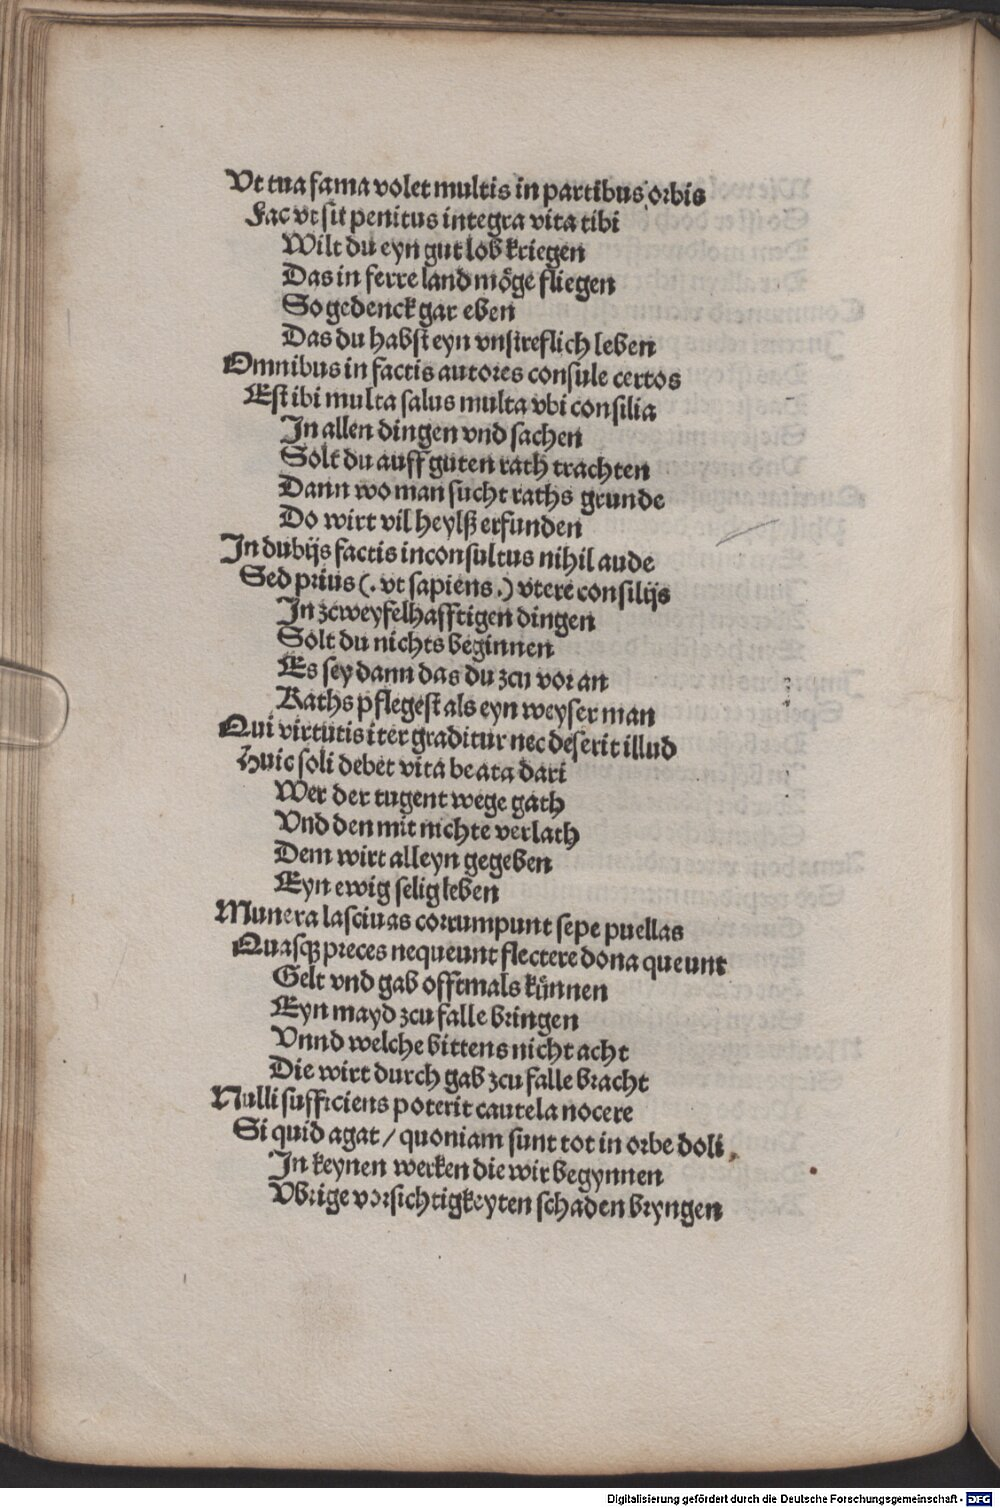 Vt tua fama volet multis in partibus orbis
Fac vt sit penitus integra vita tibi
Wilt du eyn gut lob kriegen
Das in ferre land möge fliegen
So gedenck gar eben
Das du habst eyn vnstreflich leben
Omnibus in factis autores consule certos
Est ibi multa salus multa vbi consilia
In allen dingen vnd sachen
Solt du auff guten rath trachten
Dann wo man sucht raths grunde
Do wirt vil heylß erfunden
In dubijs factis inconsultus nihil aude
Sed prius (. vt sapiens .) vtere consilijs
In zcweyfelhafftigen dingen
Solt du nichts beginnen
Es sey dann das du zcu vor an
Raths pflegest als eyn weyser man
Qui virtutis iter graditur nec deserit illud
Huic soli debet vita beata dari
Wer der tugent wege gath
Vnd den mit nichte verlath
Dem wirt alleyn gegeben
Eyn ewig selig leben
Munera lasciuas corrumpunt sepe puellas
Quasqꝫ preces nequeunt flectere dona queunt
Gelt vnd gab offtmals künnen
Eyn mayd zcu falle bringen
Vnnd welche bittens nicht acht
Die wirt durch gab zcu falle bracht
Nulli sufficiens poterit cautela nocere
Si quid agat / quoniam sunt tot in orbe doli.
In keynen werken die wir begynnen
Vbrige vorsichtigkeyten schaden bryngen
Digitalisierung gefördert durch die Deutsche Forschungsgemeinschaft - DFG